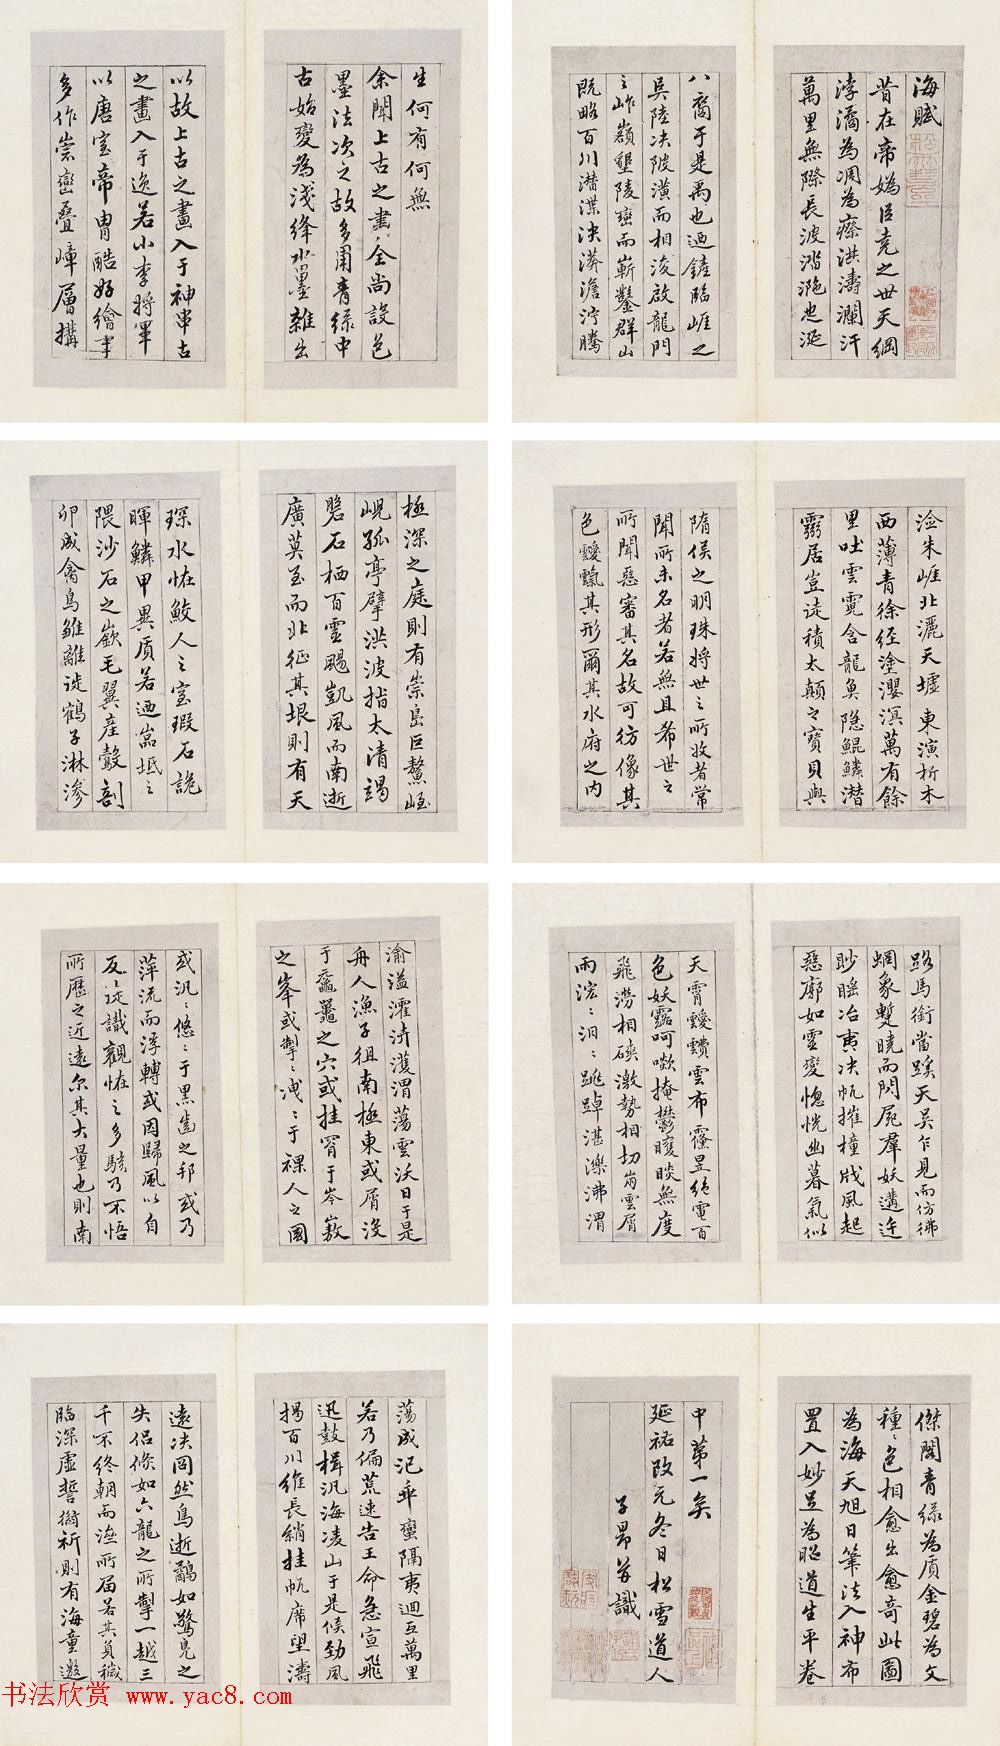 海賦
昔在帝媯臣堯之世天綱
浡潏為凋為瘵洪濤瀾汗
萬里無際長波涾滟迤涎
八裔于是禹也迺鏟臨崖之
阜陸決陂潢而相浚啟龍門
之岝嶺墾陵巒而嶄鑿群山
既略百川潛渫泱漭澹濘騰
生何有何無
余聞上古之畫全尚設色
墨法次之故多用青綠中
古始變為淺絳水墨雜出
以故上古之畫入于神中古
之畫入于逸若小李將軍
以唐室帝冑酷好繪事
多作崇巒疊嶂層構
淦朱崖北灑天墟東演析木
西薄青徐經塗瀴溟萬有餘
里吐雲霓含龍魚隱鯤鱗潛
靈居豈徒積太顛之寶貝與
隋侯之明珠將世之所收者常
聞所未名者若無且希世之
所聞惡審其名故可彷像其
色靉霼其形爾其水府之內
極深之庭則有崇島巨鰲峌
峴孤亭擘洪波指太清竭
磐石栖百靈颺凱風而南逝
廣莫至而北征其垠則有天
琛水怪鮫人之室瑕石詭
暉鱗甲異質若迺嵓坻之
隈沙石之嶔毛翼產鷇剖
卵成禽鳧雛離褷鶴子淋滲
路馬銜當蹊天吳乍見而仿彿
蝄象蹔曉而閃屍羣妖遘迕
眇䁘冶夷決帆摧橦戕風起
惡廓如靈變惚恍幽暮氣似
天霄靉靅雲布霮昱絕電百
色妖露呵欻掩鬱矆睒無度
飛澇相磢激勢相切崩雲屑
雨浤〻汩〻跳踔湛濼沸渭
渝溢瀖濟濩渭蕩雲沃日于是
舟人漁子徂南極東或屑沒
于黿鼉之穴或挂罥于岑嶅
之峯或掣〻洩〻于裸人之國
或汎〻悠〻于黑齒之邦或乃
萍流而浮轉或因歸風以自
反徒識觀怪之多駭乃不悟
所歷之近遠尔其大量也則南
傑閣青綠為質金碧為文
種〻色相愈出愈奇此圖
為海天旭日筆法入神布
置入妙足為昭道生平卷
中第一矣
延祐改元冬日松雪道人
子昂并識
蕩成汜乖蠻隔夷迴互萬里
若乃偏荒速告王命急宣飛
迅鼓楫汎海凌山于是候勁風
揭百川維長綃挂帆席望濤
遠決冏然鳥逝鷸如驚鳧之
失侶倏如六龍之所掣一越三
千不終朝而濟所屆若其負穢
臨深虛誓愆祈則有海童邀
书法欣赏 www.yac8.com